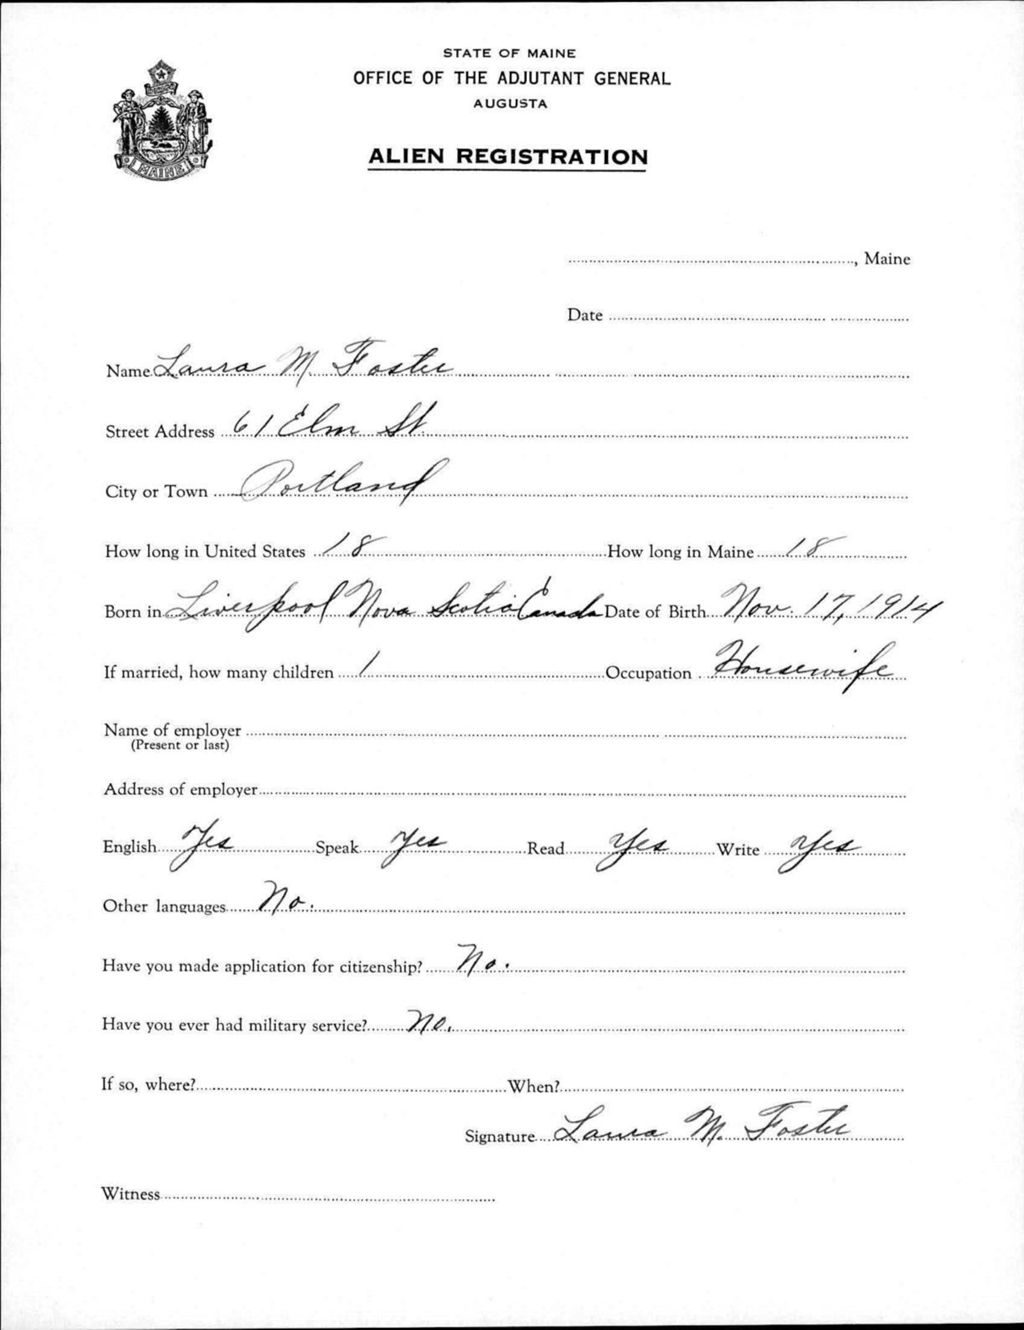 STATE OF MAINE
OFFICE OF THE ADJUTANT GENERAL
AUGUSTA
ALIEN REGISTRATION
MAINE
, Maine
Date
Name Laura M. Foster
Street Address 61 Elm St.
City or Town Portland
How long in United States 18 How long in Maine 18
Born in Liverpool Nova Scotia Canada Date of Birth Nov. 17, 1914
If married, how many children 1 Occupation Housewife
Name of employer
(Present or last)
Address of employer
English Yes Speak Yes Read Yes Write Yes
Other languages No.
Have you made application for citizenship? No.
Have you ever had military service? No.
If so, where? When?
Signature Laura M. Foster
Witness